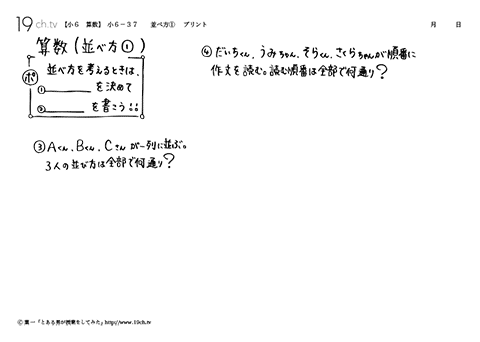 19ch.tv 【小6 算数】 小6-37 並べ方① プリント 月 日
算数(並べ方①)
ポ 並べ方を考えるときは、
① を決めて
② を書こう!!
③Aくん、Bくん、Cさんが一列に並ぶ。
3人の並び方は全部で何通り?
④だいちくん、うみちゃん、そらくん、さくらちゃんが順番に
作文を読む。読む順番は全部で何通り?
© 葉一「とある男が授業をしてみた」http://www.19ch.tv